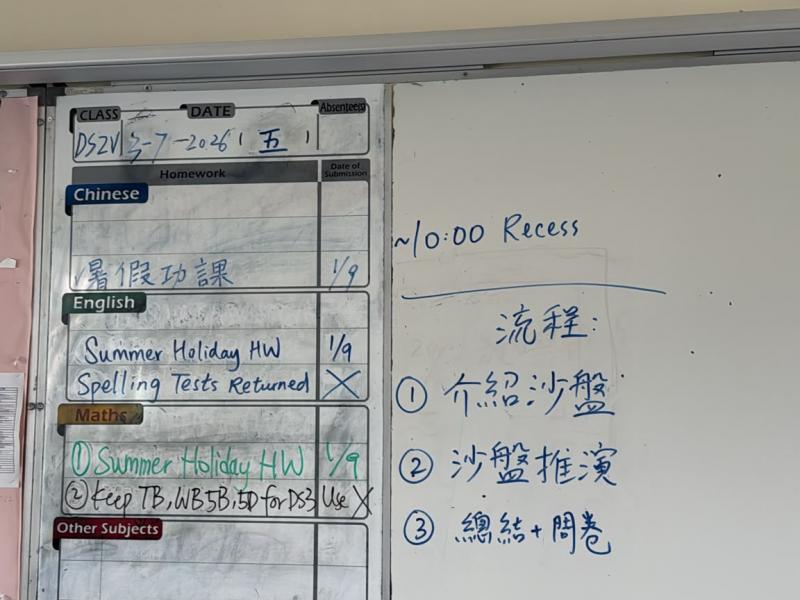 CLASS DATE Absentees
DS2V 3-7-2026 ( 五 )
Homework Date of Submission
Chinese
暑假功課 1/9
English
Summer Holiday HW 1/9
Spelling Tests Returned X
Maths
① Summer Holiday HW 1/9
② Keep TB, WB 5B, 5D for DS3 Use X
Other Subjects
~10:00 Recess
流程:
① 介紹沙盤
② 沙盤推演
③ 總結+問卷